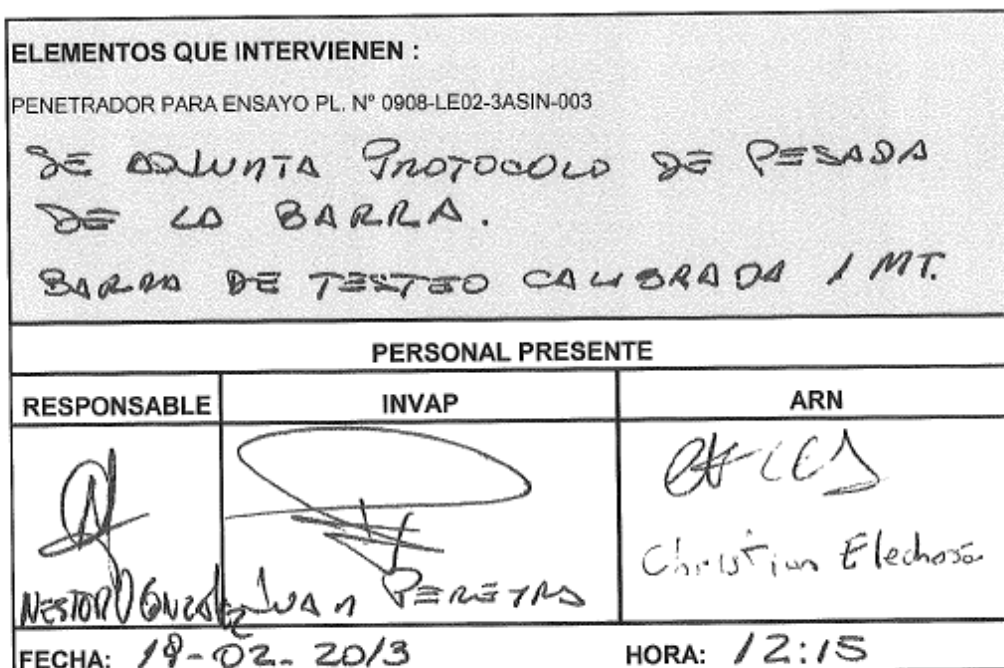 ELEMENTOS QUE INTERVIENEN :
PENETRADOR PARA ENSAYO PL. Nº 0908-LE02-3ASIN-003
SE ADJUNTA PROTOCOLO DE PESADA
DE LA BARRA.
BARRA DE TESTEO CALIBRADA 1 MT.
PERSONAL PRESENTE
RESPONSABLE INVAP ARN
Christian Elechosa
NESTOR GONZALEZ JUAN PEREYRA
FECHA: -02-2013 HORA: 12:15